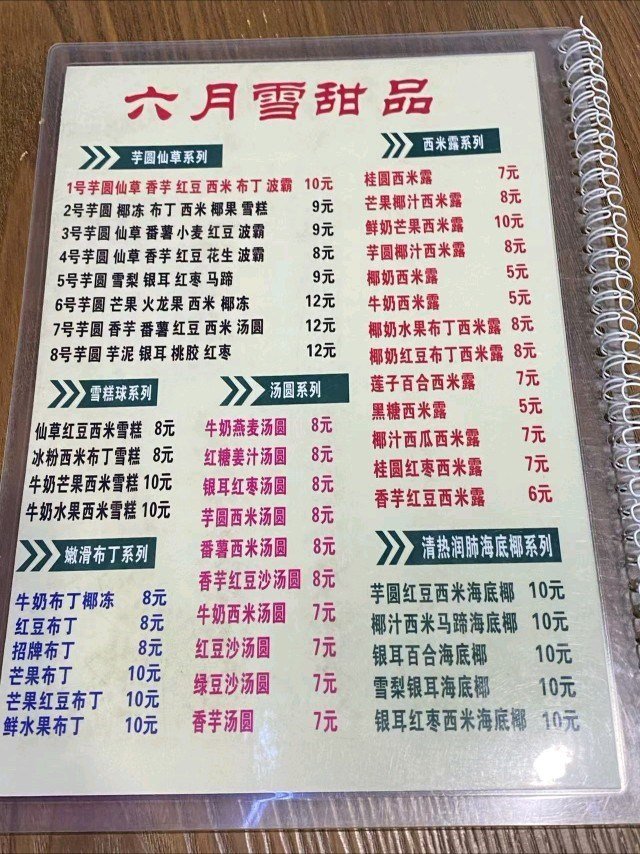 六月雪甜品
芋圆仙草系列
1号芋圆 仙草 香芋 红豆 西米 布丁 波霸 10元
2号芋圆 椰冻 布丁 西米 椰果 雪糕 9元
3号芋圆 仙草 番薯 小麦 红豆 波霸 9元
4号芋圆 仙草 香芋 红豆 花生 波霸 8元
5号芋圆 雪梨 银耳 红枣 马蹄 9元
6号芋圆 芒果 火龙果 西米 椰冻 12元
7号芋圆 香芋 番薯 红豆 西米 汤圆 12元
8号芋圆 芋泥 银耳 桃胶 红枣 12元
西米露系列
桂圆西米露 7元
芒果椰汁西米露 8元
鲜奶芒果西米露 10元
芋圆椰汁西米露 8元
椰奶西米露 5元
牛奶西米露 5元
椰奶水果布丁西米露 8元
椰奶红豆布丁西米露 8元
莲子百合西米露 7元
黑糖西米露 5元
椰汁西瓜西米露 7元
桂圆红枣西米露 7元
香芋红豆西米露 6元
雪糕球系列
仙草红豆西米雪糕 8元
冰粉西米布丁雪糕 8元
牛奶芒果西米雪糕 10元
牛奶水果西米雪糕 10元
汤圆系列
牛奶燕麦汤圆 8元
红糖姜汁汤圆 8元
银耳红枣汤圆 8元
芋圆西米汤圆 8元
番薯西米汤圆 8元
香芋红豆沙汤圆 8元
牛奶西米汤圆 7元
红豆沙汤圆 7元
绿豆沙汤圆 7元
香芋汤圆 7元
嫩滑布丁系列
牛奶布丁椰冻 8元
红豆布丁 8元
招牌布丁 8元
芒果布丁 10元
芒果红豆布丁 10元
鲜水果布丁 10元
清热润肺海底椰系列
芋圆红豆西米海底椰 10元
椰汁西米马蹄海底椰 10元
银耳百合海底椰 10元
雪梨银耳海底椰 10元
银耳红枣西米海底椰 10元